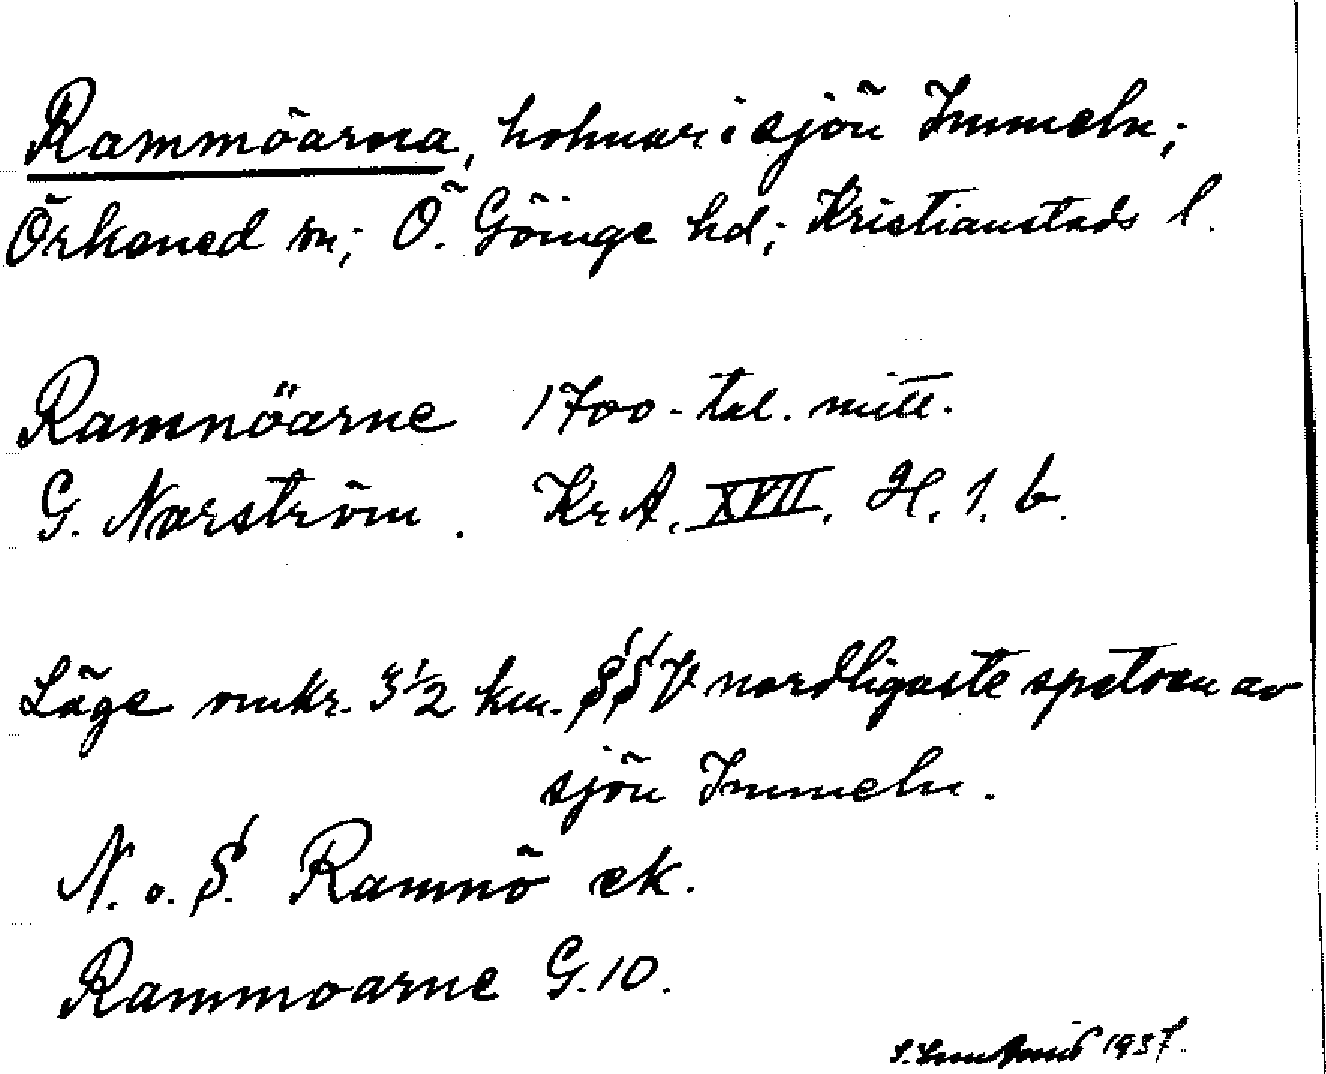 Rammöarna, holmar i sjön Immeln;
Örkened sn; Ö. Göinge hd; Kristianstads l.
Ramnöarne 1700-tal. mitt.
G. Norström. Kr.A. XVII. H. 1. b.
Läge omkr. 3 1/2 km. SSV nordligaste spetsen av
sjön Immeln.
N. o. S. Ramnö ek.
Rammoarne G. 10.
1937.